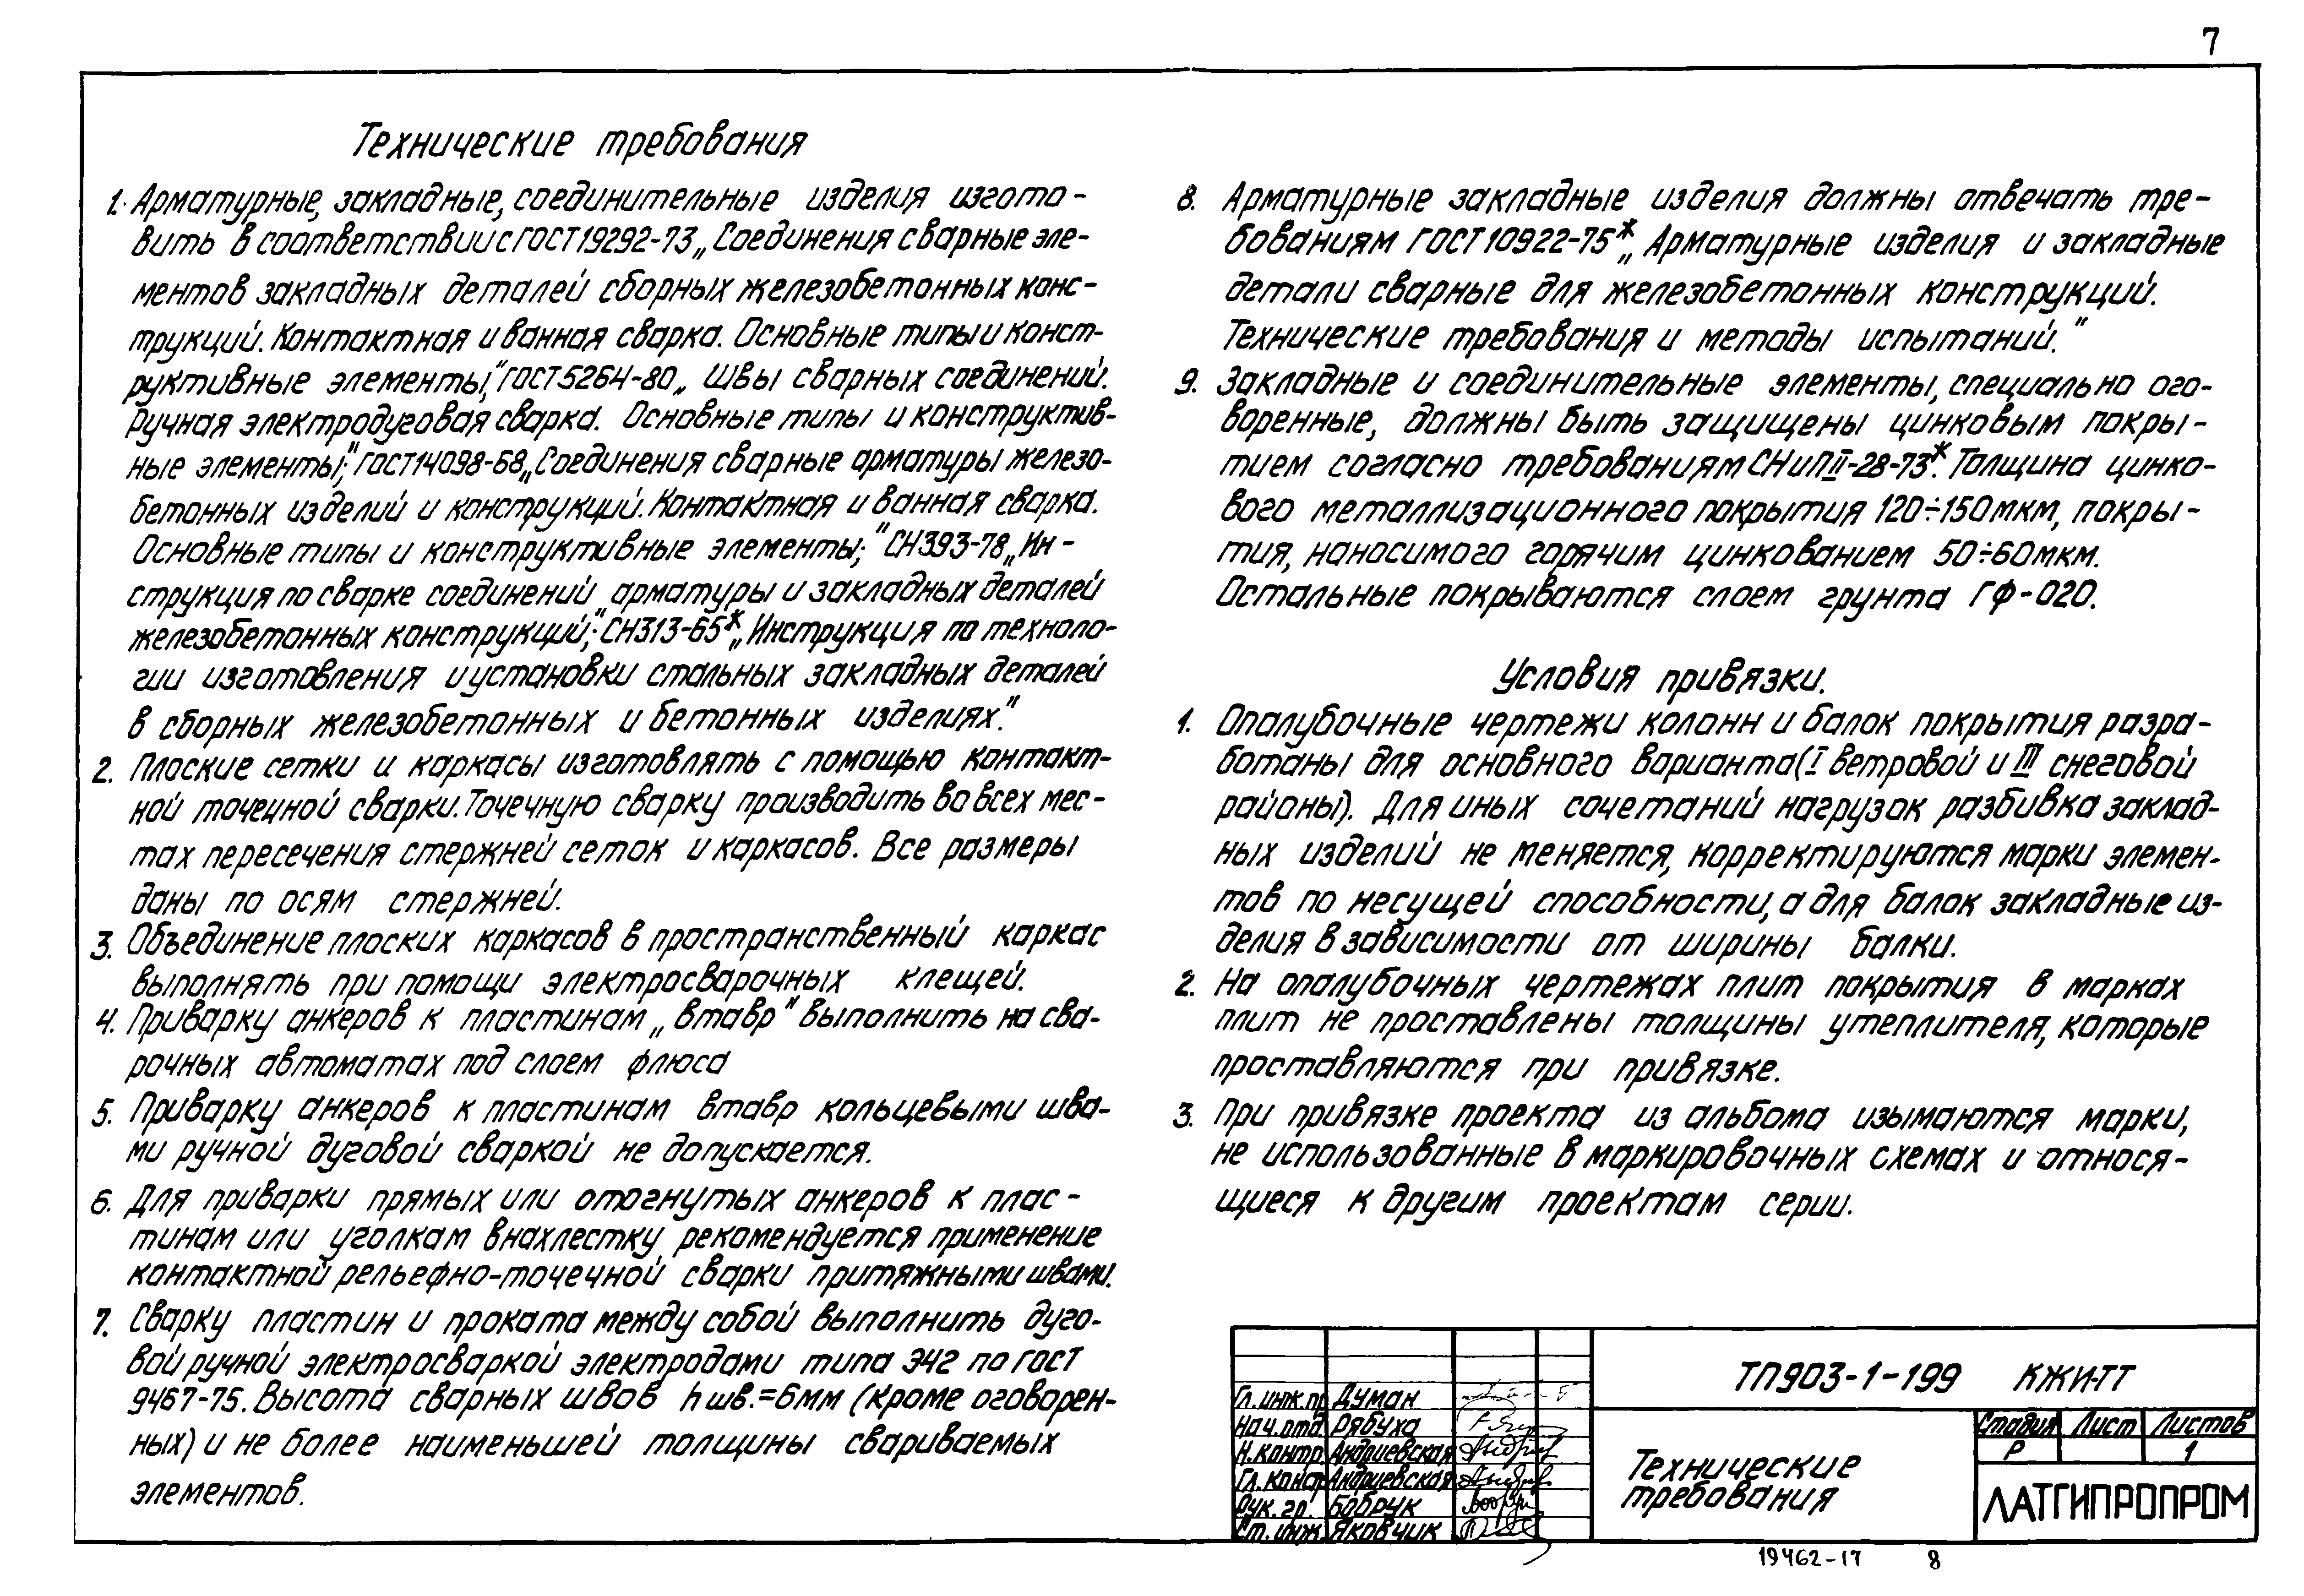 7
Технические требования
1. Арматурные, закладные, соединительные изделия изгото-
вить в соответствии с ГОСТ 19292-73 „Соединения сварные эле-
ментов закладных деталей сборных железобетонных конс-
трукций. Контактная и ванная сварка. Основные типы и конст-
руктивные элементы," ГОСТ 5264-80 „Швы сварных соединений.
Ручная электродуговая сварка. Основные типы и конструктив-
ные элементы;" ГОСТ 14098-68 „Соединения сварные арматуры железо-
бетонных изделий и конструкций. Контактная и ванная сварка.
Основные типы и конструктивные элементы;" СН 393-78 „Ин-
струкция по сварке соединений арматуры и закладных деталей
железобетонных конструкций;" СН 313-65* „Инструкция по техноло-
гии изготовления и установки стальных закладных деталей
в сборных железобетонных и бетонных изделиях."
2. Плоские сетки и каркасы изготовлять с помощью контакт-
ной точечной сварки. Точечную сварку производить во всех мес-
тах пересечения стержней сеток и каркасов. Все размеры
даны по осям стержней.
3. Объединение плоских каркасов в пространственный каркас
выполнять при помощи электросварочных клещей.
4. Приварку анкеров к пластинам „втавр" выполнить на сва-
рочных автоматах под слоем флюса
5. Приварку анкеров к пластинам втавр кольцевыми шва-
ми ручной дуговой сваркой не допускается.
6. Для приварки прямых или отогнутых анкеров к плас-
тинам или уголкам внахлестку рекомендуется применение
контактной рельефно-точечной сварки притяжными швами.
7. Сварку пластин и проката между собой выполнить дуго-
вой ручной электросваркой электродами типа Э42 по ГОСТ
9467-75. Высота сварных швов hшв.=6мм (кроме оговорен-
ных) и не более наименьшей толщины свариваемых
элементов.
8. Арматурные закладные изделия должны отвечать тре-
бованиям ГОСТ 10922-75* „Арматурные изделия и закладные
детали сварные для железобетонных конструкций.
Технические требования и методы испытаний."
9. Закладные и соединительные элементы, специально ого-
воренные, должны быть защищены цинковым покры-
тием согласно требованиям СНиП II-28-73*. Толщина цинко-
вого металлизационного покрытия 120÷150мкм, покры-
тия, наносимого горячим цинкованием 50÷60мкм.
Остальные покрываются слоем грунта ГФ-020.
Условия привязки.
1. Опалубочные чертежи колонн и балок покрытия разра-
ботаны для основного варианта (I ветровой и III снеговой
районы). Для иных сочетаний нагрузок разбивка заклад-
ных изделий не меняется, корректируются марки элемен-
тов по несущей способности, а для балок закладные из-
делия в зависимости от ширины балки.
2. На опалубочных чертежах плит покрытия в марках
плит не проставлены толщины утеплителя, которые
проставляются при привязке.
3. При привязке проекта из альбома изымаются марки,
не использованные в маркировочных схемах и относя-
щиеся к другим проектам серии.
Гл. инж. пр Думан
Нач. отд Рябуха
Н. контр Андриевская
Гл. констр Андриевская
Рук. гр. Бобрук
Ст. инж Яковчик
ТП 903-1-199 КЖИ-ТТ
Технические
требования
Стадия Лист Листов
Р 1
ЛАТГИПРОПРОМ
19462-17 8